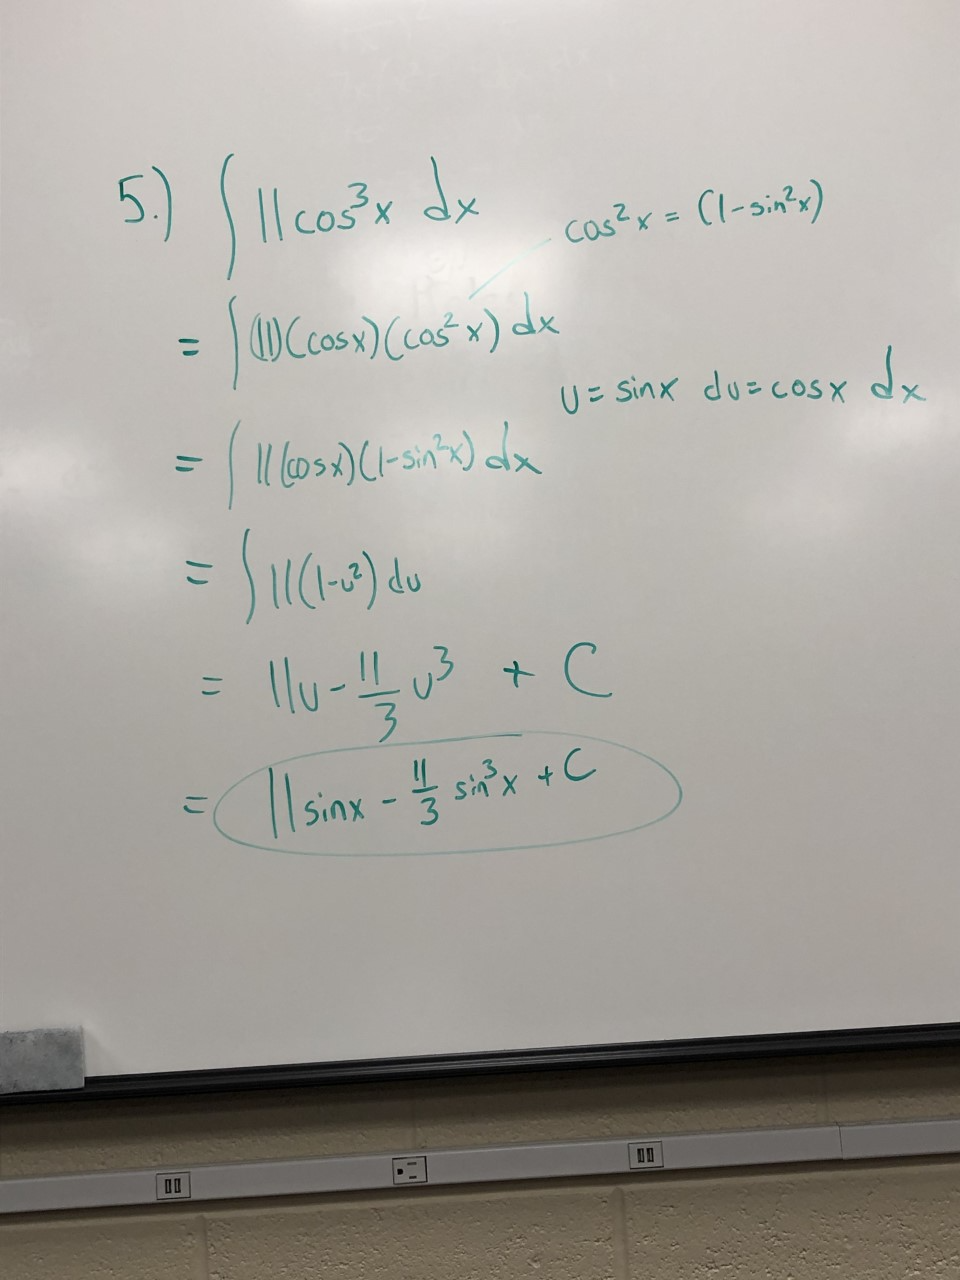 5.) ∫ 11cos³x dx
cos²x = (1-sin²x)
= ∫ (11)(cosx)(cos²x) dx
u = sinx du = cosx dx
= ∫ 11(cosx)(1-sin²x) dx
= ∫ 11(1-u²) du
= 11u - 11/3 u³ + C
= 11sinx - 11/3 sin³x + C